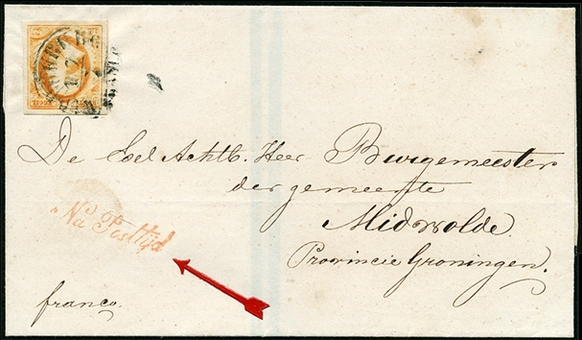 FRANCO
De Edel Achtb. Heer Burgemeester
der gemeente
Midwolde.
Provincie Groningen.
Na Posttijd
franco.